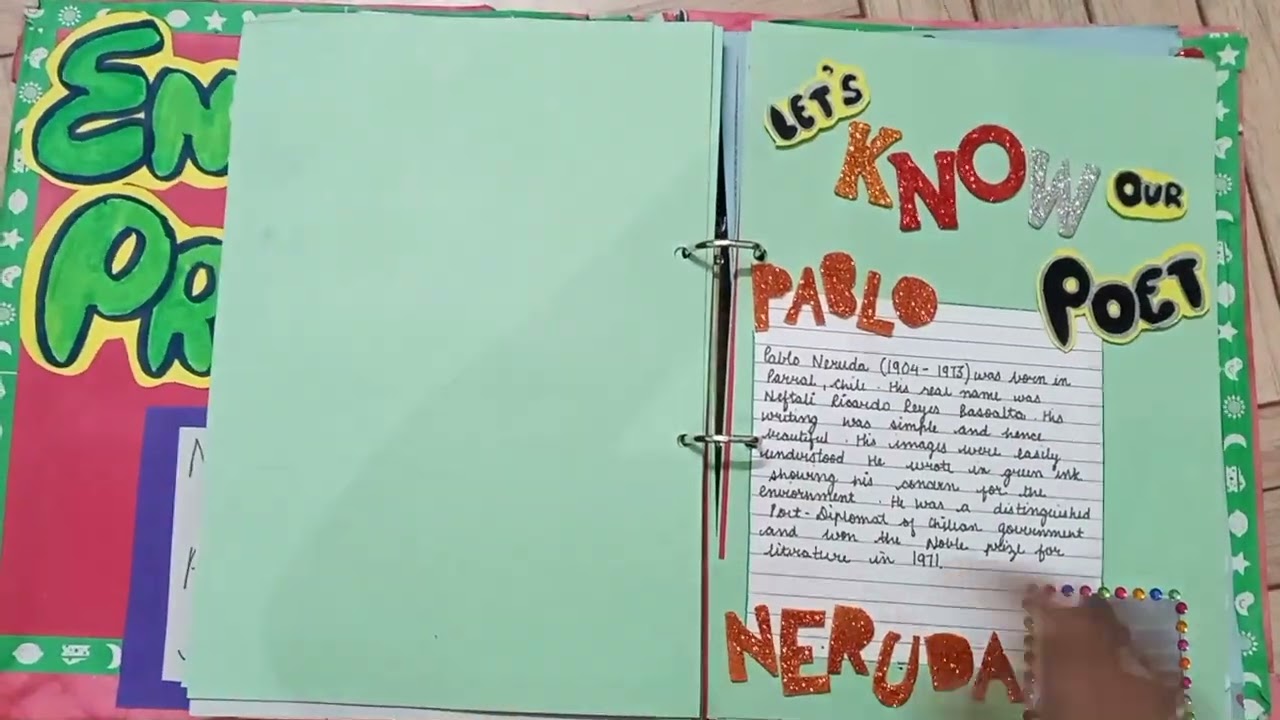 En
Pr
LET'S
KNOW
OUR
POET
PABLO
Pablo Neruda (1904 - 1973) was born in
Parral, Chile. His real name was
Neftali Ricardo Reyes Basoalto. His
writing was simple and hence
beautiful. His images were easily
understood He wrote in green ink
showing his concern for the
envirornment. He was a distinguished
Poet-Diplomat of Chilean government
and won the Noble prize for
literature in 1971.
NERUDA